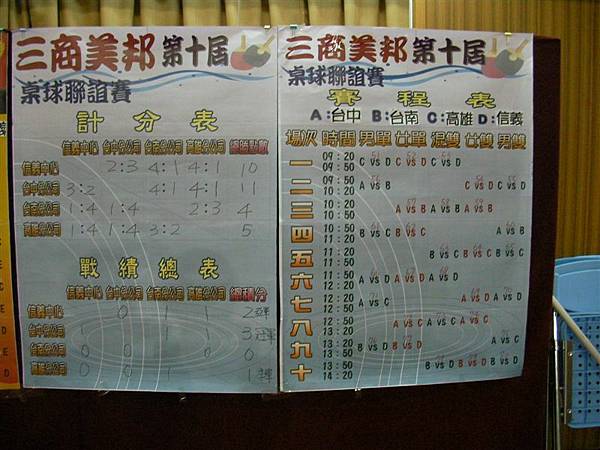 三商美邦 第十屆
桌球聯誼賽
計分表
信義中心 台中分公司 台南分公司 高雄分公司 總勝點數
信義中心 2:3 4:1 4:1 10
台中分公司 3:2 4:1 4:1 11
台南分公司 1:4 1:4 2:3 4
高雄分公司 1:4 1:4 3:2 5
戰績總表
信義中心 台中分公司 台南分公司 高雄分公司 總積分
信義中心 0 1 1 2
台中分公司 1 1 3 冠軍
台南分公司 0 0 0
高雄分公司 0 0 1 1
三商美邦 第十屆
桌球聯誼賽
賽程表
A:台中 B:台南 C:高雄 D:信義
場次 時間 男單 女單 混雙 女雙 男雙
一 09:20 09:50 C vs D C vs D C vs D
二 09:50 10:20 A vs B C vs D C vs D
三 10:20 10:50 A vs B A vs B A vs B
四 10:50 11:20 B vs C B vs C A vs B
五 11:20 11:50 B vs C B vs C B vs C
六 11:50 12:20 A vs D A vs D A vs D
七 12:20 12:50 A vs C A vs D A vs D
八 12:50 13:20 A vs C A vs C A vs C
九 13:20 13:50 B vs D B vs D A vs C
十 13:50 14:20 B vs D B vs D B vs D